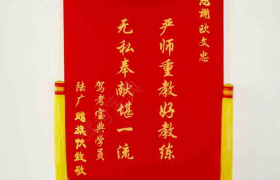 感谢欧文忠
严师重教好教练
无私奉献堪一流
驾考宝典学员
陆广 赠旗帜致敬